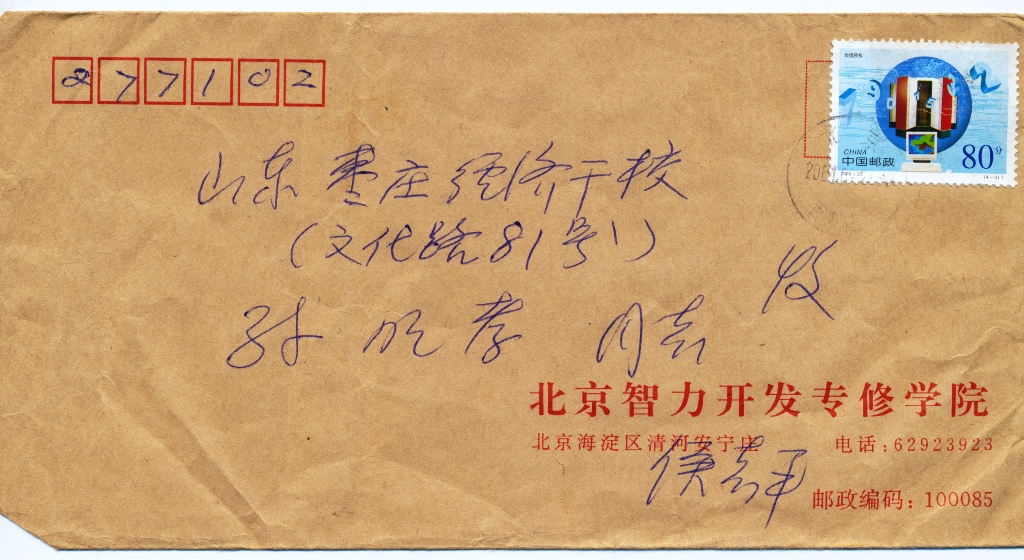 277102
中国邮政
CHINA
80分
山东枣庄经济干校
(文化路81号)
孙明孝 同志
收
北京智力开发专修学院
北京海淀区清河安宁庄 电话:62923923
侯志平
邮政编码:100085